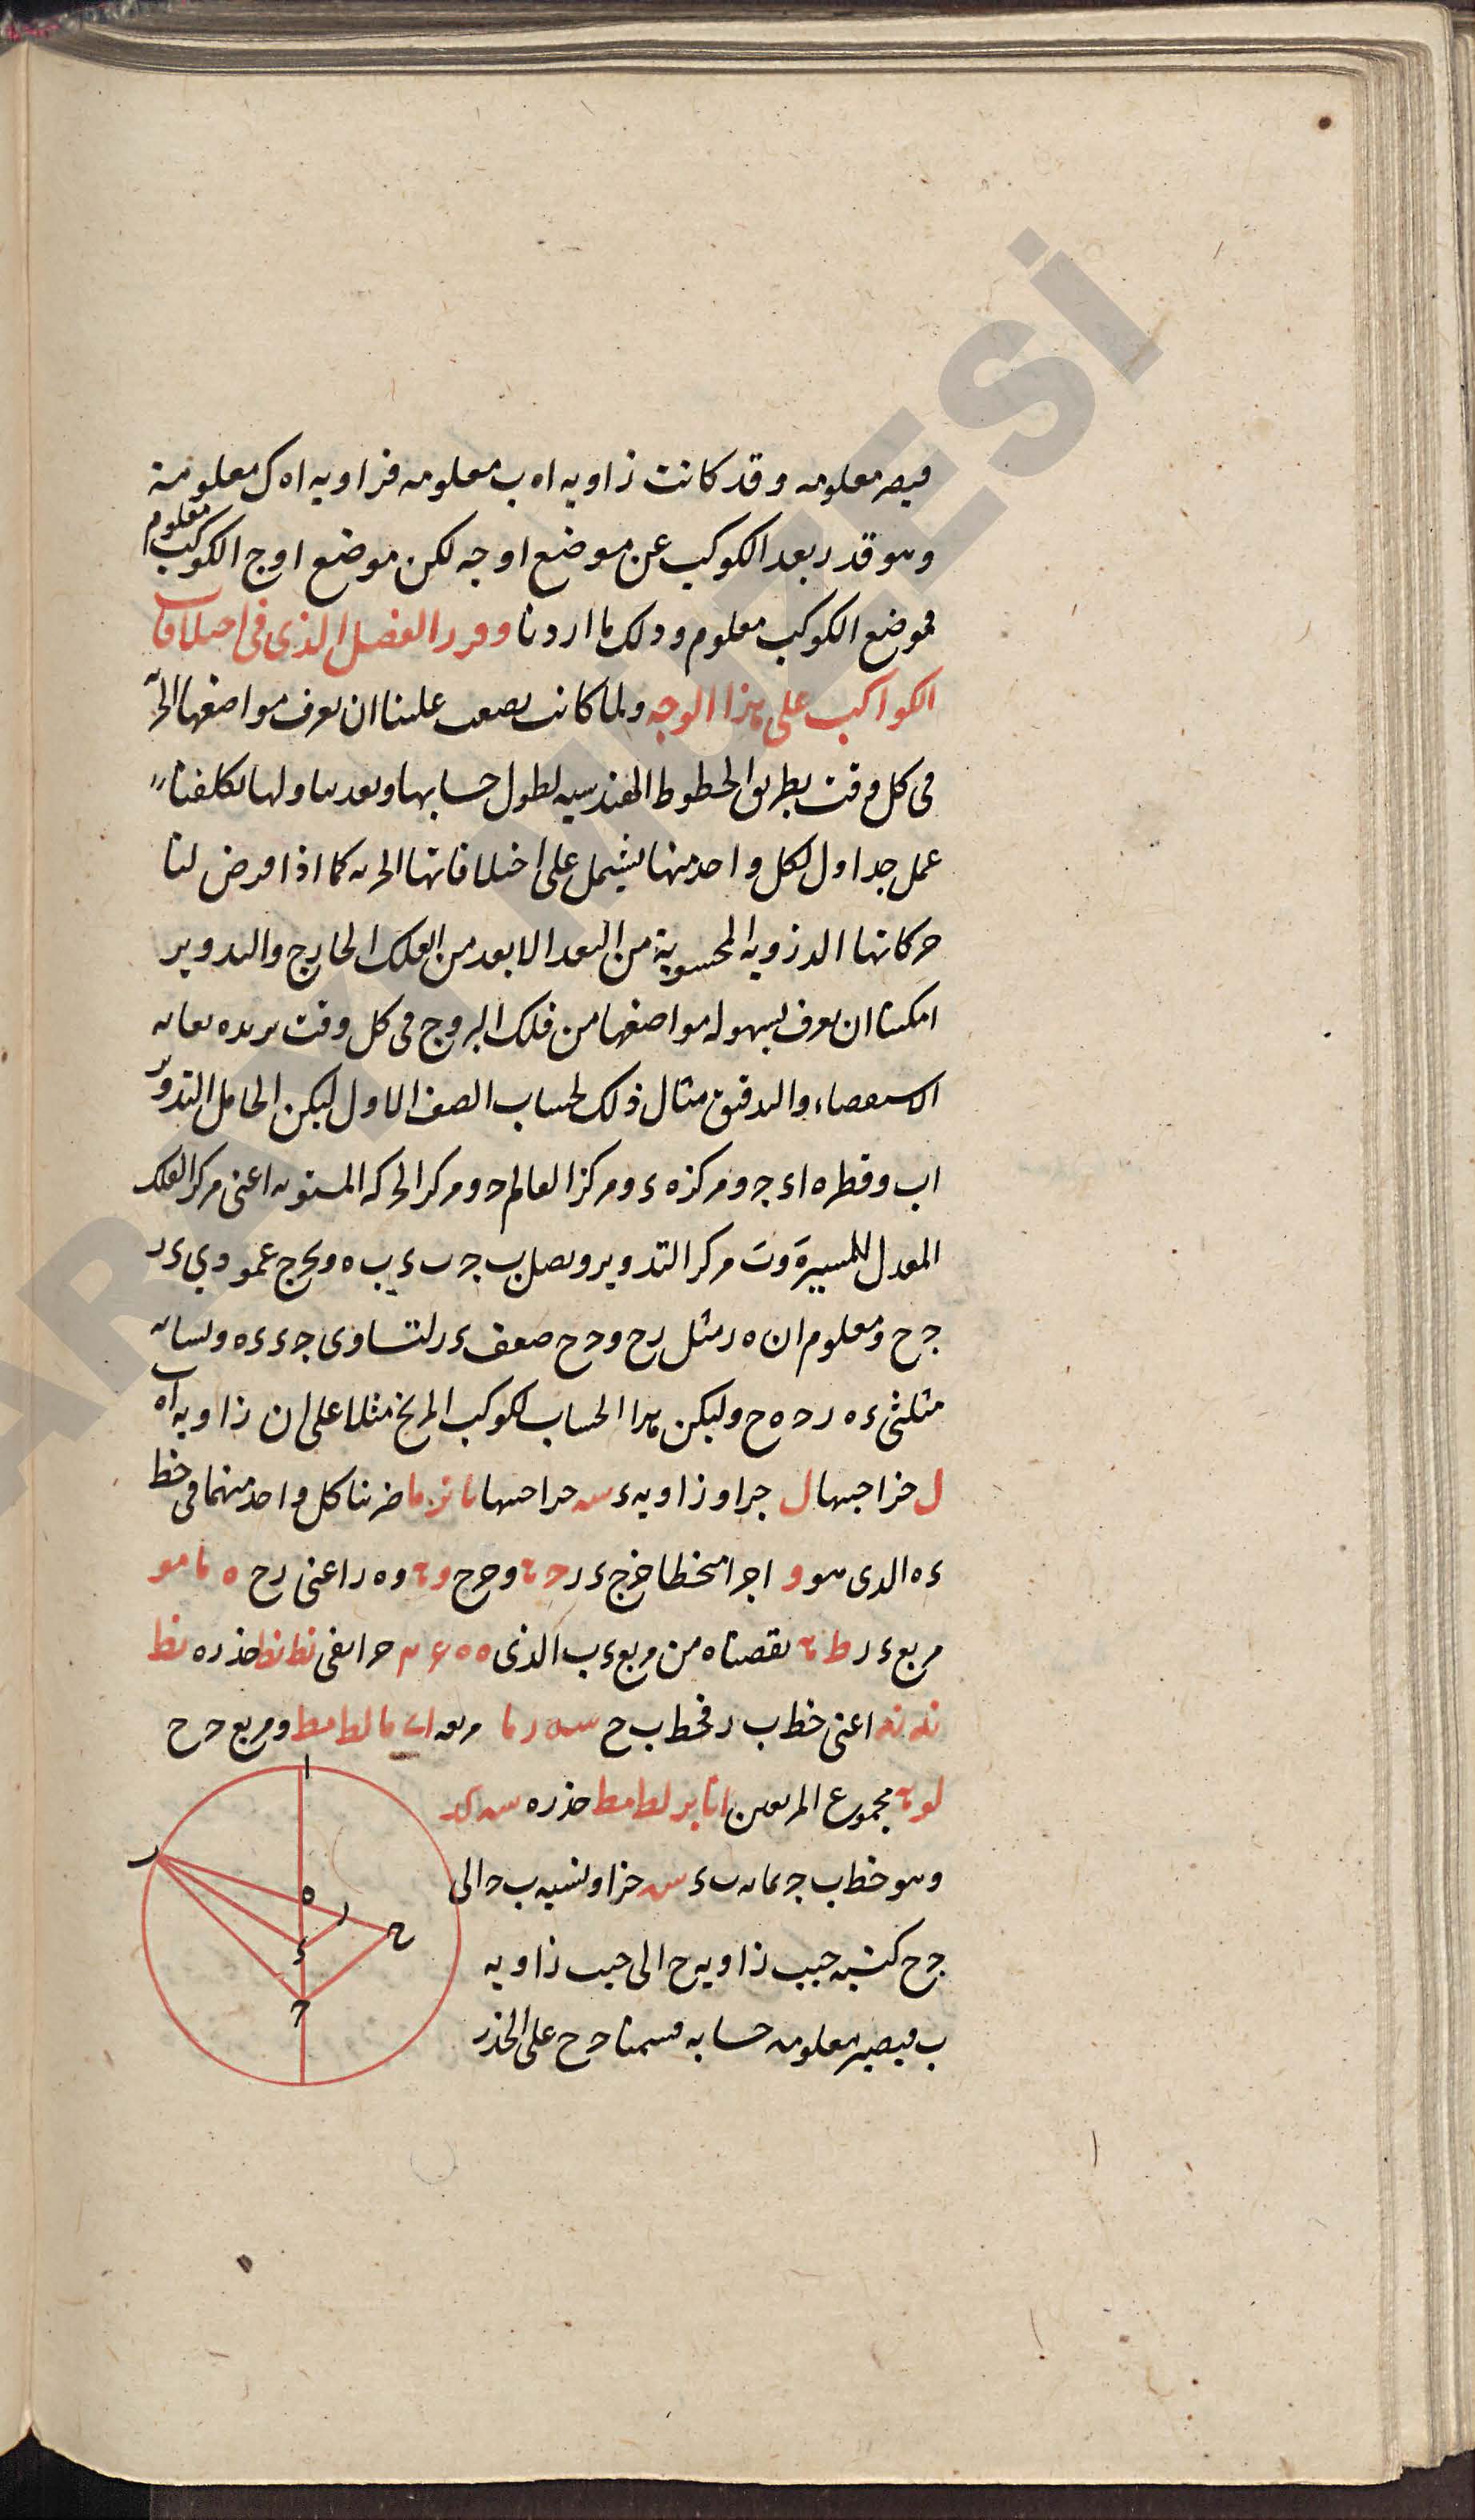 فيصير معلومه وقد كانت زاويه اه ب معلومه فزاويه اه ك معلومة
وهو قدر بعد الكوكب عن موضع اوجه لكن موضع اوج الكوكب معلوم
فموضع الكوكب معلوم وذلك ما اردنا وورر الفضل الذى فى اختلافات
الكواكب على هذا الوجه ولما كانت يصعب علينا ان نعرف مواضعها الجزئيه
فى كل وقت بطريق الخطوط الهندسيه لطول حسابها وبعد تناولها تكلفنا
عمل جداول لكل واحد منها يشتمل على اختلافاتها الجزئيه كما اذا فرض لنا
حركاتها الدوريه المحسوبة من البعد الابعد من الفلك الخارج والتدوير
امكننا ان نعرف بسهوله مواضعها من فلك البروج فى كل وقت نريده بغايه
الاستقصاء والتدقيق مثال ذلك لحساب الصف الاول ليكن الحامل للتدوير
اب وقطره اء ج ومركزه ء ومركز العالم ح ومركز الحركه المستويه اعنى مركز الفلك
المعدل للمسير ه وب مركز التدوير ونصل ب ج ب ء ب ه ونخرج عمودي ء ر
ج ح ومعلوم ان ه ر مثل رح وح ح ضعف ء ر لتساوى ج ء ء ه وتشابه
مثلثى ء ه ر ح ه ح وليكن هذا الحساب لكوكب المريخ مثلا على ان زاويه اه ب
ل جزا جيبها ل جزا وزاويه ء س جزا جيبها نا نز ما ضربنا كل واحد منهما فى خط
ء ه الذى هو و اجزا فخطا خرج ء ر ح و ح ح و و ه ر اعنى رح ه نا مو
مربع ء ر ط نقصناه من مربع ء ب الذى جزا بقى نط نط جذره نط
نه نه اعنى خط ب ر فخط ب ح سه ر ما مربعه ما لط مط ومربع ح ح
لو مجموع المربعين لط مط جذره سه كد
وهو خط ب ج بما به ب ء س جزا ونسبه ب ح الى
ج ح كنسبه جيب زاويه ح الى جيب زاويه
ب فيصير معلومه حسابه قسمنا ح ح على الجذر
ا
ر
ه
ر
ح
ء
ح